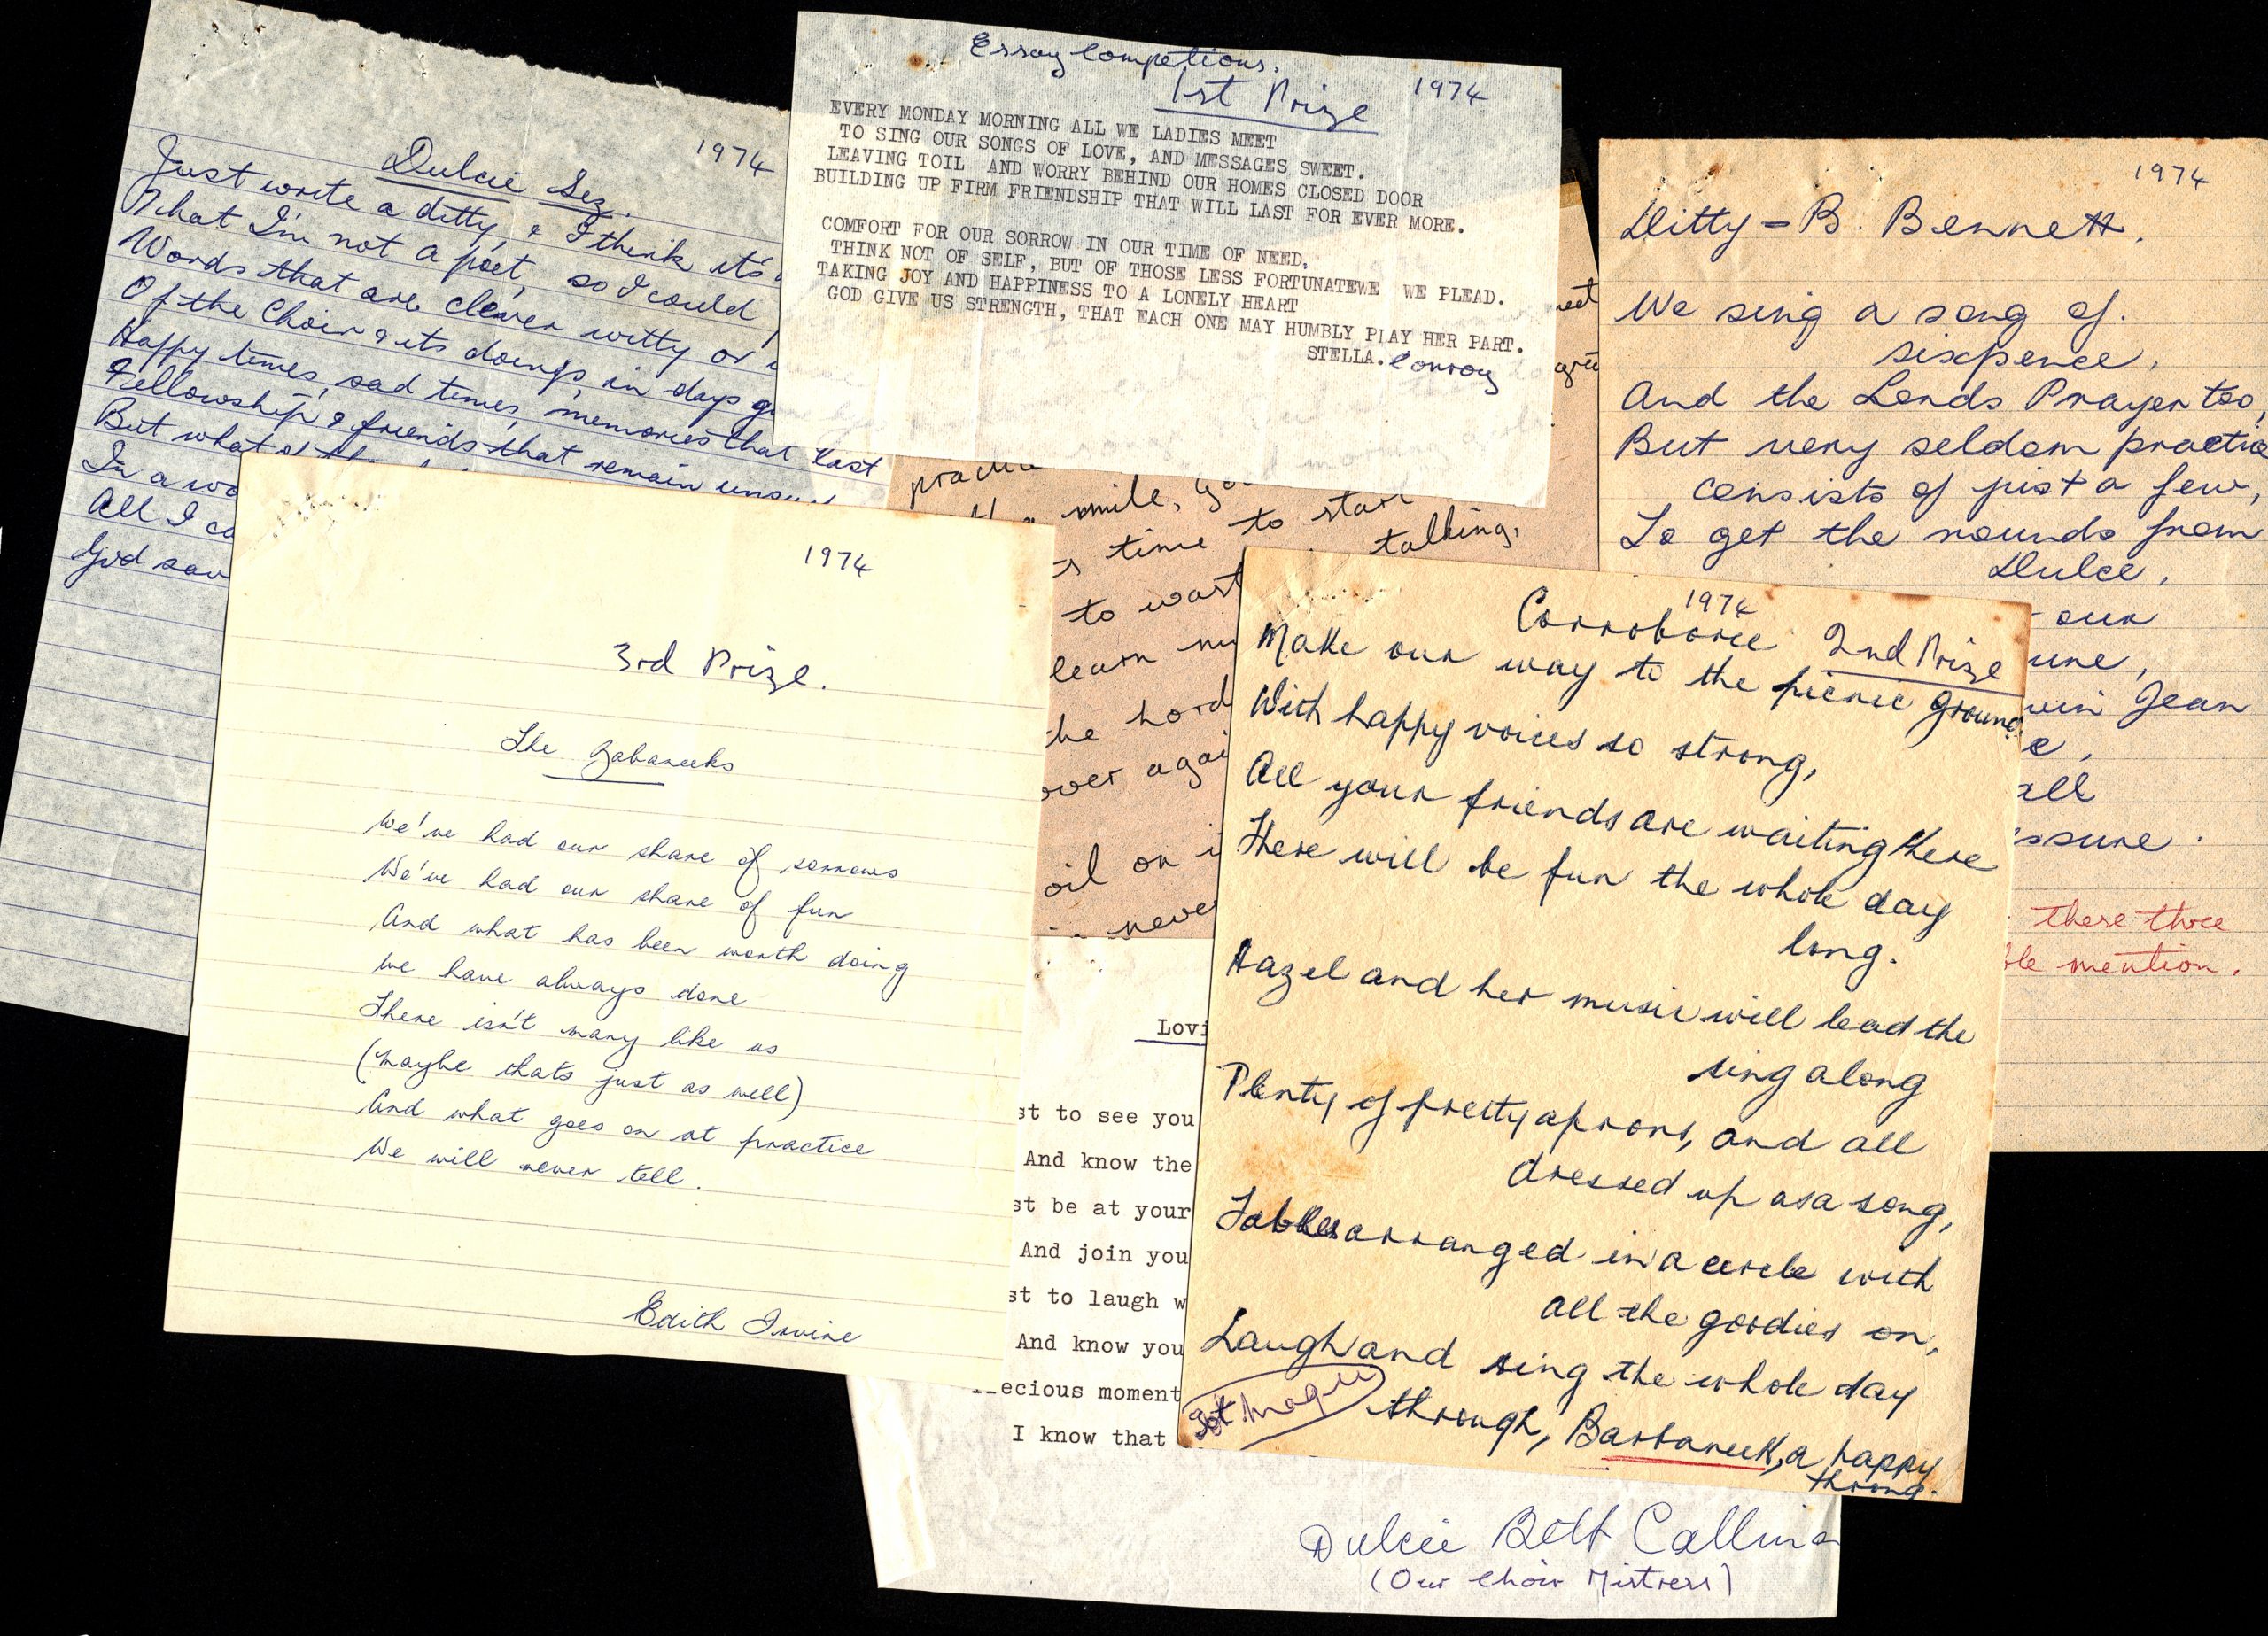 Dulcie Sez.
1974
Just write a ditty, & I think it's
What I'm not a poet, so I could
Words that are clever witty or
Of the Choir & its doings, in days g
Happy times, sad times, memories that last
Fellowship & friends that remain
But what of
In a wo
All I ca
God sav
Essay Competions.
1st Prize
1974
EVERY MONDAY MORNING ALL WE LADIES MEET
TO SING OUR SONGS OF LOVE, AND MESSAGES SWEET.
LEAVING TOIL AND WORRY BEHIND OUR HOMES CLOSED DOOR
BUILDING UP FIRM FRIENDSHIP THAT WILL LAST FOR EVER MORE.
COMFORT FOR OUR SORROW IN OUR TIME OF NEED,
THINK NOT OF SELF, BUT OF THOSE LESS FORTUNATEWE WE PLEAD.
TAKING JOY AND HAPPINESS TO A LONELY HEART
GOD GIVE US STRENGTH, THAT EACH ONE MAY HUMBLY PLAY HER PART.
STELLA. Conroy
1974
Ditty = B. Bennett.
We sing a song of.
sixpence,
And the Lords Prayer too,
But very seldom practice
consists of just a few,
To get the rounds from
Dulce,
our
une,
win Jean
e,
all
ssure.
there three
ble mention.
smile,
time to start
talking,
to wast
learn my
the hard
over agai
oil on i
never
1974
3rd Prize.
The Babaneeks
We've had our share of sorrows
We've had our share of fun
And what has been worth doing
We have always done
There isn't many like us
(Maybe thats just as well)
And what goes on at practice
We will never tell.
Edith Irvine
1974
Corroboree 2nd Prize
Make our way to the picnic ground
With happy voices so strong,
All your friends are waiting there
There will be fun the whole day
long.
Hazel and her music will lead the
sing along
Plenty of pretty aprons, and all
dressed up as a song,
Tables arranged in a circle with
all the goodies on,
Laugh and sing the whole day
through, Barbaneek, a happy
throng.
Lovi
st to see you
And know the
st be at your
And join you
st to laugh w
And know you
ecious moment
I know that
Dulcie Bett Callina
(Our Choir Mistress)